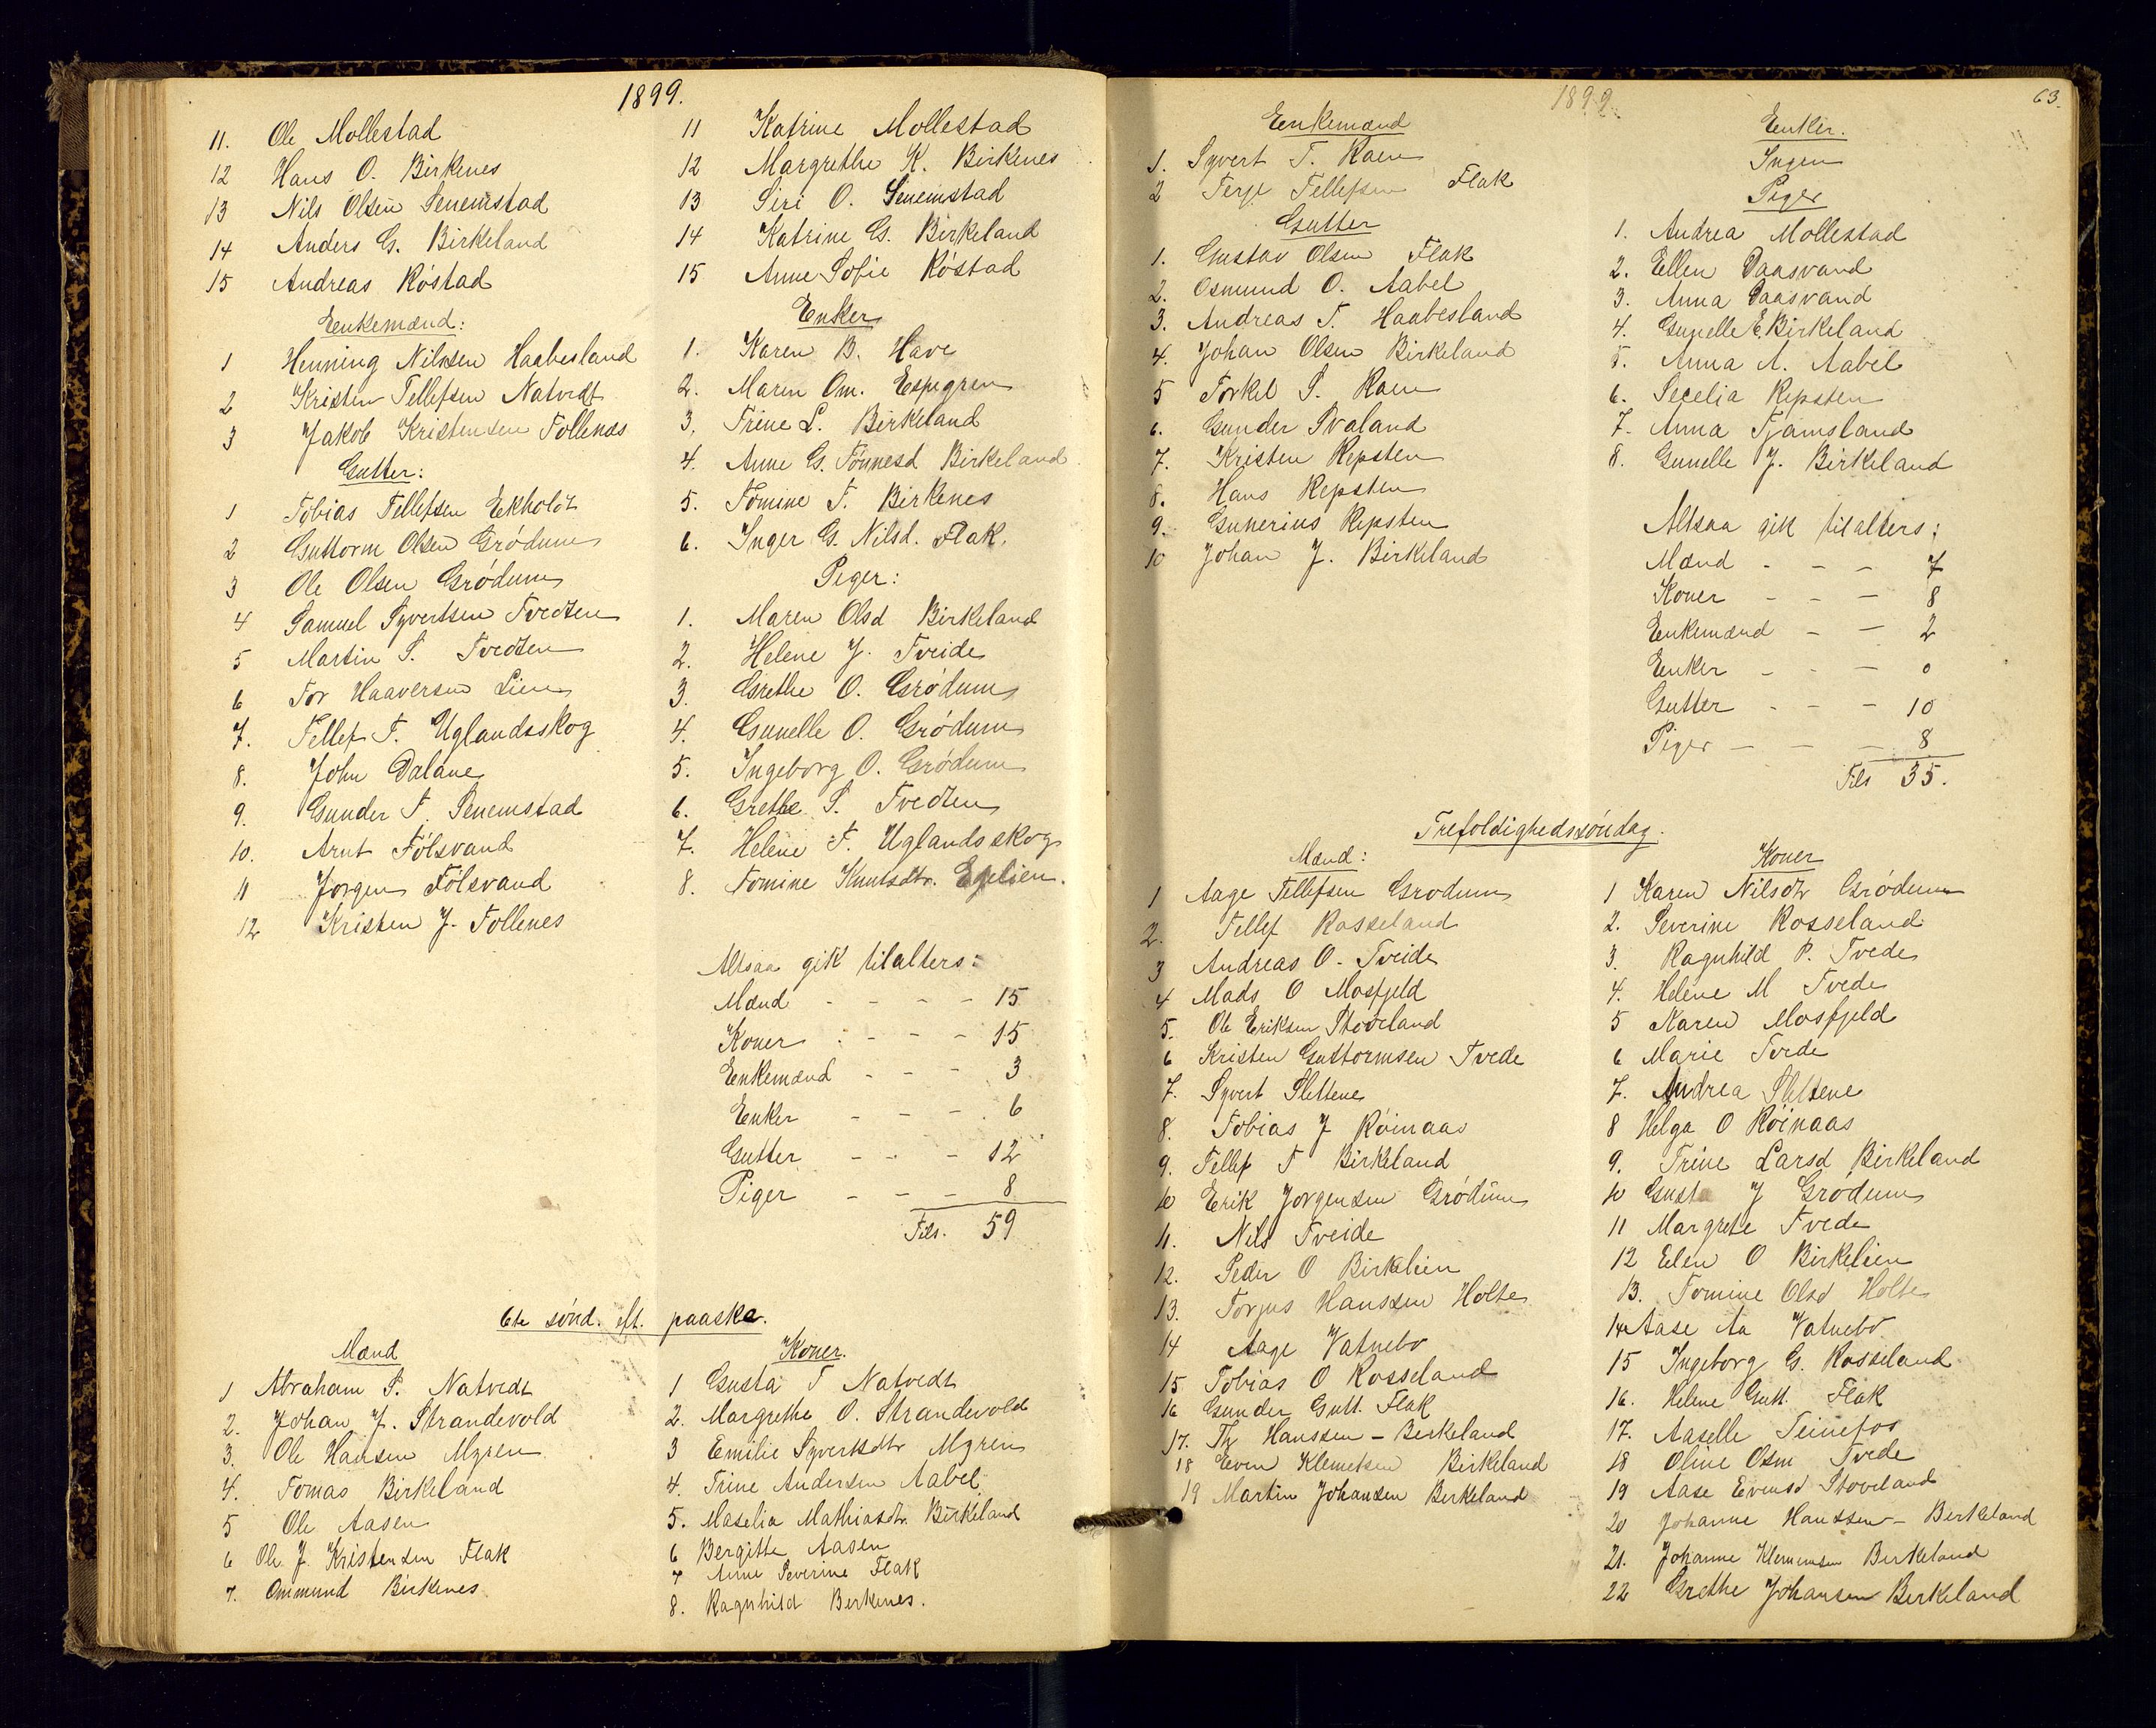 1899.
11. Ole Mollestad
12 Hans O. Birkenes
13 Nils Olsen Senemstad
14 Anders G. Birkeland
15 Andreas Röstad
Enkemænd:
1 Henning Nilssen Haabesland
2 Kristen Tellefsen Natvedt
3 Jakob Kristensen Tollenæs
Gutter:
1 Tobias Tellefsen Eekholt
2 Guttorm Olsen Grödum
3 Ole Olsen Grödum
4 Samuel Syvertsen Tvedten
5 Martin S. Tvedten
6 Tor Haaversen Lien
7. Tellef T. Uglandsskog
8. John Dalane
9. Gunder T. Senemstad
10. Arnt Fölsvand
11 Jorgen Fölsvand
12 Kristen J. Tollenes
11 Katrine Mollestad
12 Margrethe K. Birkenes
13 Siri O. Senemstad
14 Katrine G. Birkeland
15 Anne Sofie Röstad
Enker
1. Karen B. Have
2. Maren Om. Espegren
3, Trine L. Birkeland
4. Anne G. Tönnesd Birkeland
5. Tomine T. Birkenes
6. Inger G. Nilsd. Flak.
Piger:
1. Maren Olsd Birkeland
2. Helene J. Tveide
3. Grethe O. Grödum
4. Gunelle O. Grödum
5. Ingeborg O. Grödum
6. Grethe S. Tvedten
7. Helene T. Uglandsskog
8. Tomine Knutsdtr. Egelien.
Altsaa gik tilalters:
Mænd - - - - 15
Koner - - - - 15
Enkemænd - - - 3
Enker - - - 6
Gutter - - - 12
Piger - - - 8
Tils. 59
6te sönd. eft. paaske.
Mænd
1 Abraham S. Natvedt
2. Johan J. Strandevold
3. Ole Hansen Mgren
4. Tomas Birkeland
5 Ole Aasen
6 Ole J. Kristensen Flak
7. Ommund Birkenes
Koner.
1 Gusta T Natvedt
2. Margrethe O. Strandevold
3 Emilie Syvertsdtr Mgren
4. Trine Andersen Aabel
5. Maselia Mathiasdtr. Birkeland
6 Bergitte Aasen
7 Anne Severine Flak
8. Ragnhild Berkenes.
1899.
63.
Enkemænd
1. Syvert T. Raen
2 Terje Tellefsen Flak
Gutter
1. Gustav Olsen Flak
2. Osmund O. Aabel
3. Andreas T. Haabesland
4. Johan Olsen Birkeland
5 Torkel S. Raen
6. Gunder Svaland
7. Kristen Repsten
8. Hans Repsten
9. Gunerius Repsten
10 Johan J. Birkeland
Enker.
Ingen
Piger
1. Andrea Mollestad
2. Ellen Daasvand
3. Anna Daasvand
4. Gunelle E. Birkeland
5. Anna A. Aabel
6. Secelia Repsten
7. Anna Tjamsland
8. Gunelle J. Birkeland
Altsaa gik tilalters:
Mænd - - - 7
Koner - - - 8
Enkemænd - - 2
Enker - - - 0
Gutter - - - 10
Piger - - - 8
Tils 35.
Trefoldighedssöndag.
Mænd:
1 Aage Tellefsen Grodum
2. Tellef Rosseland
3 Andreas O. Tveide
4 Mads O Mosfjeld
5. Ole Eriksen Stoveland
6 Kristen Guttormsen Tvede
7. Syvert Slettene
8. Tobias J Röinaas
9. Tellef T Birkeland
10 Erik Jorgensen Grödum
11. Nils Tveide
12. Peder O Birkelien
13. Torjus Hanssen Holte
14 Aage Vatnebo
15 Tobias O Rosseland
16 Gunder Gutt. Flak
17. Th Hanssen - Berkeland
18 Even Klemetsen Birkeland
19 Martin Johansen Berkeland
Koner
1 Karen Nilsdtr Grödum
2. Severine Rosseland
3. Ragnhild P. Tvede
4. Helene M Tvede
5 Karen Mosfjeld
6 Marie Tvede
7. Andrea Slettene
8 Helga O Röinaas
9. Trine Larsd Birkeland
10 Gusta J Grodum
11 Margrete Tvede
12 Elen O Birkelien
13. Tomine Olsd Holte
14 Aase Aa Vatnebo
15 Ingeborg G. Rosseland
16. Helene Gutt. Flak
17. Aaselle Teinefos
18 Oline Osm Tvede
19 Aase Evensd Stoveland
20 Johanne Hanssen - Berkeland
21. Johanne Klemmsen Berkeland
22 Grethe Johansen Berkeland